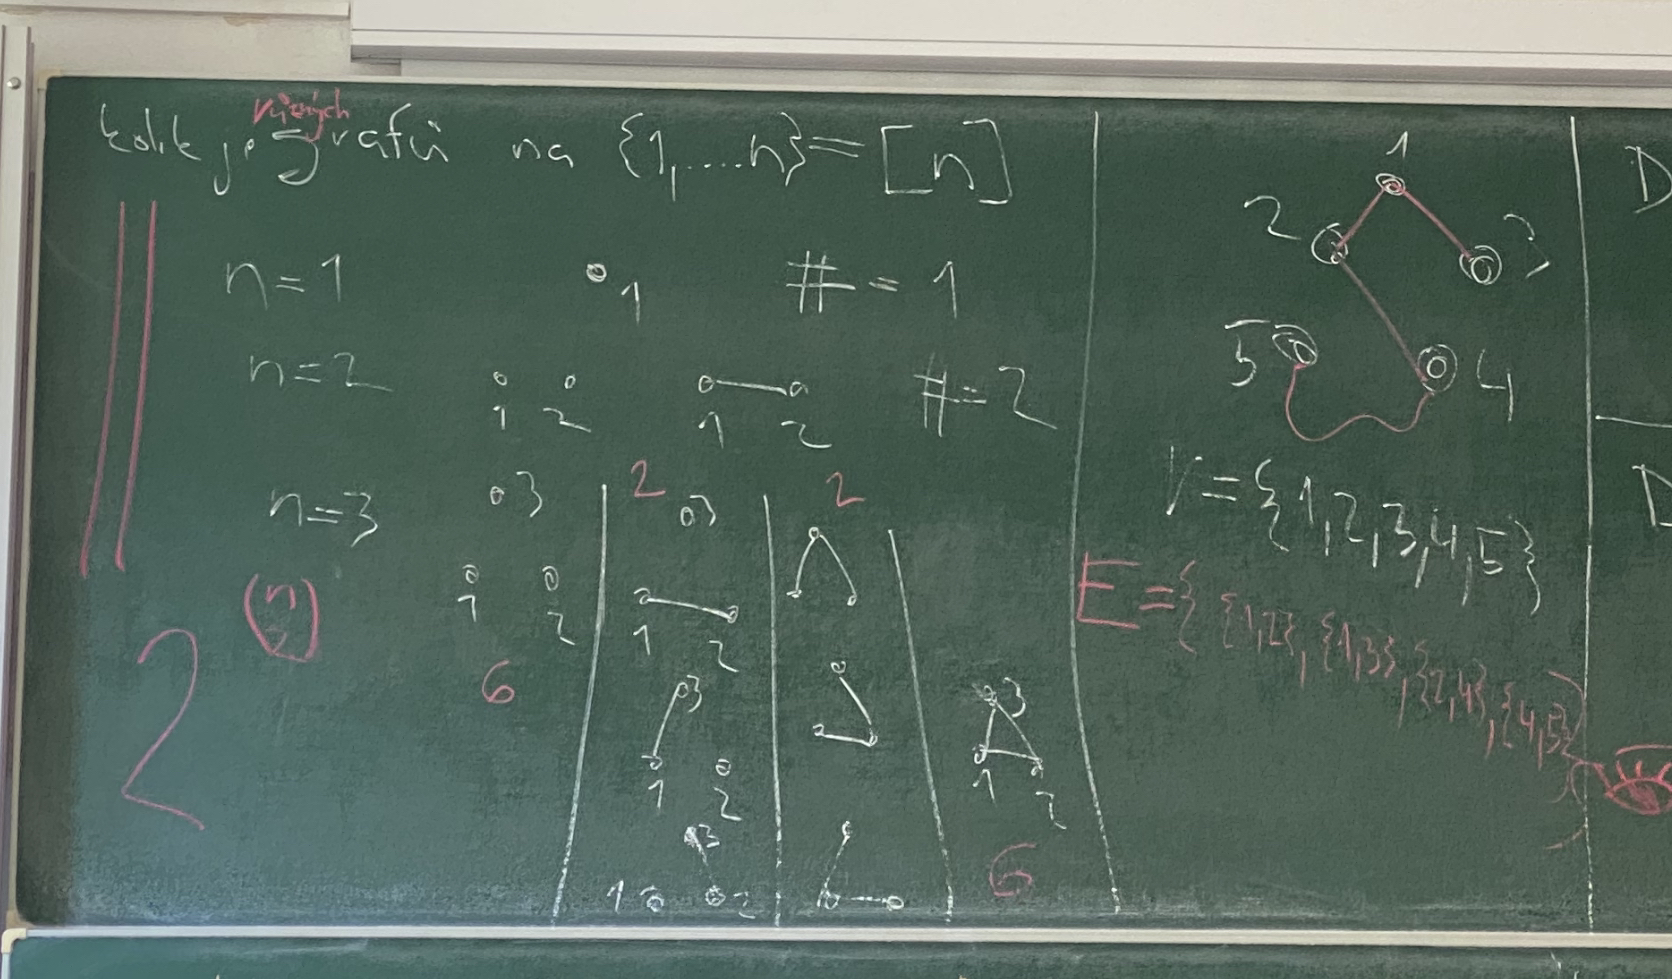 kolik je různých grafů na {1,....n} = [n]
n=1 1 # = 1
n=2 1 2 1 2 #=2
n=3 3 2 3 2
1 2 1 2
2^(n 2)
6 3 3
1 2 1 2
3
1 2 6
1
2 3
5 4
V={1,2,3,4,5}
E={{1,2},{1,3},{2,4},{4,5}}
D
D